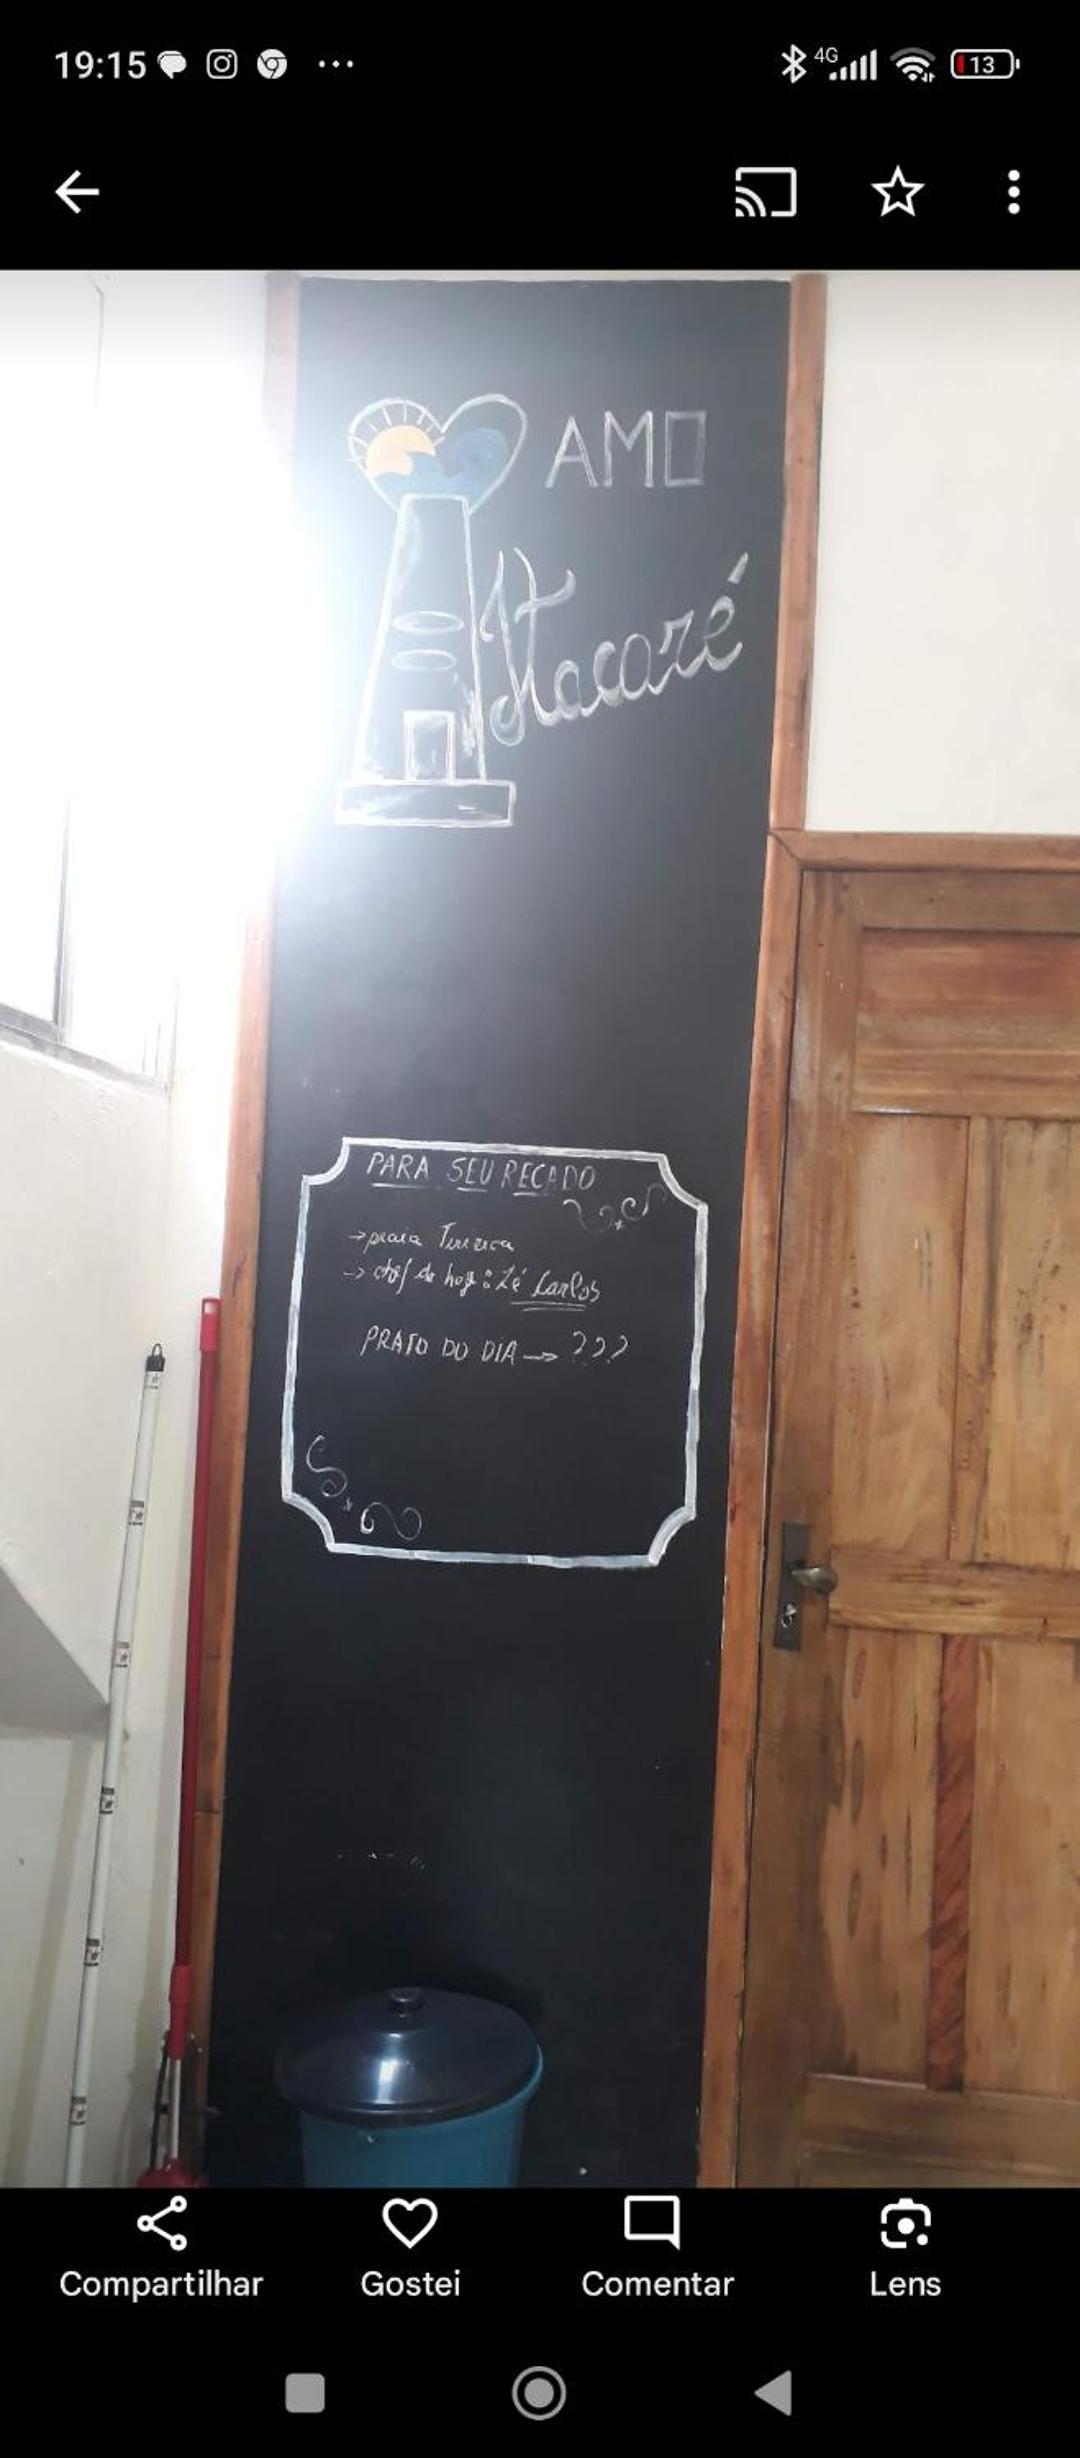 19:15
4G
13
AMO
Itacaré
PARA SEU RECADO
→praia Tiririca
→ chef de hoje: Zé Carlos
PRATO DO DIA → ???
Compartilhar
Gostei
Comentar
Lens